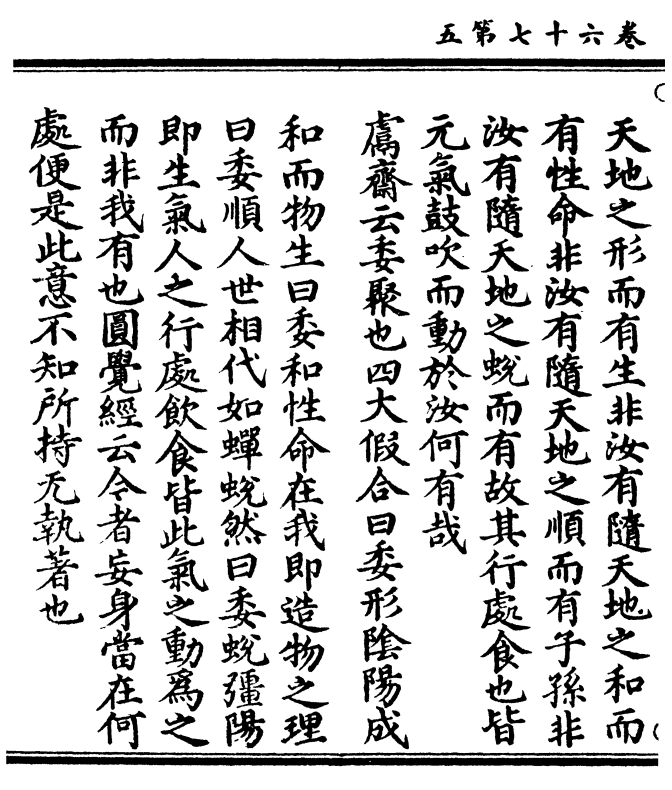 卷六十七第五
天地之形而有生非汝有隨天地之和而
有性命非汝有隨天地之順而有子孫非
汝有隨天地之蛻而有故其行處食也皆
元氣鼓吹而動於汝何有哉
鬳齋云委聚也四大假合曰委形陰陽成
和而物生曰委和性命在我即造物之理
曰委順人世相代如蟬蛻然曰委蛻彊陽
即生氣人之行處飲食皆此氣之動爲之
而非我有也圓覺經云今者妄身當在何
處便是此意不知所持旡執著也